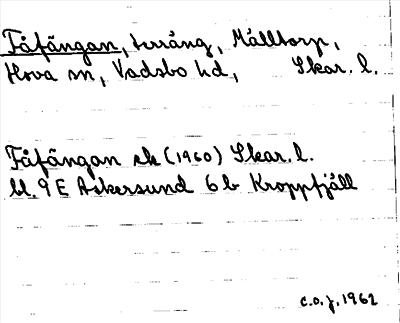 Fåfängan, terräng, Målltorp,
Hova sn, Vadsbo hd, Skar. l.
Fåfängan ek (1960) Skar. l.
bl. 9 E Askersund 6 b Kroppfjäll
C.O.J. 1962